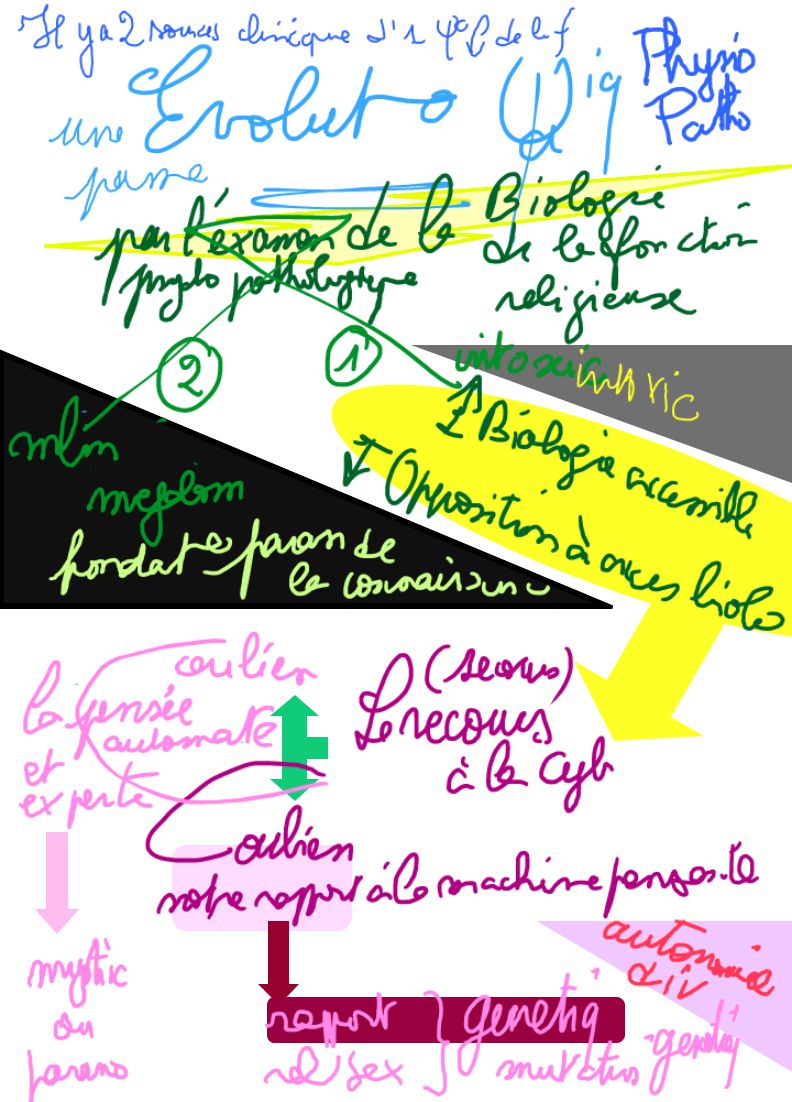 Il y a 2 sources clinique d'1 φ de la f
Physio
Patho
une Evoluto ψ iq
passe
par l'examen de la Biologie
psycho pathologique de la fonction
religieuse
2 1
intoxic intoxic
1 Biologie accessible
Opposition à acces biolo
mlm
megalom
fondat parano de
la connaissance
coulien
la pensée
automate
et
experte
(secours)
Le recours
à la Cyb
Coulien
notre rapport à la machine pensante
mystic
ou
parano
autonomie
div
rapport } genetiq
rel/sex mutation genetiq